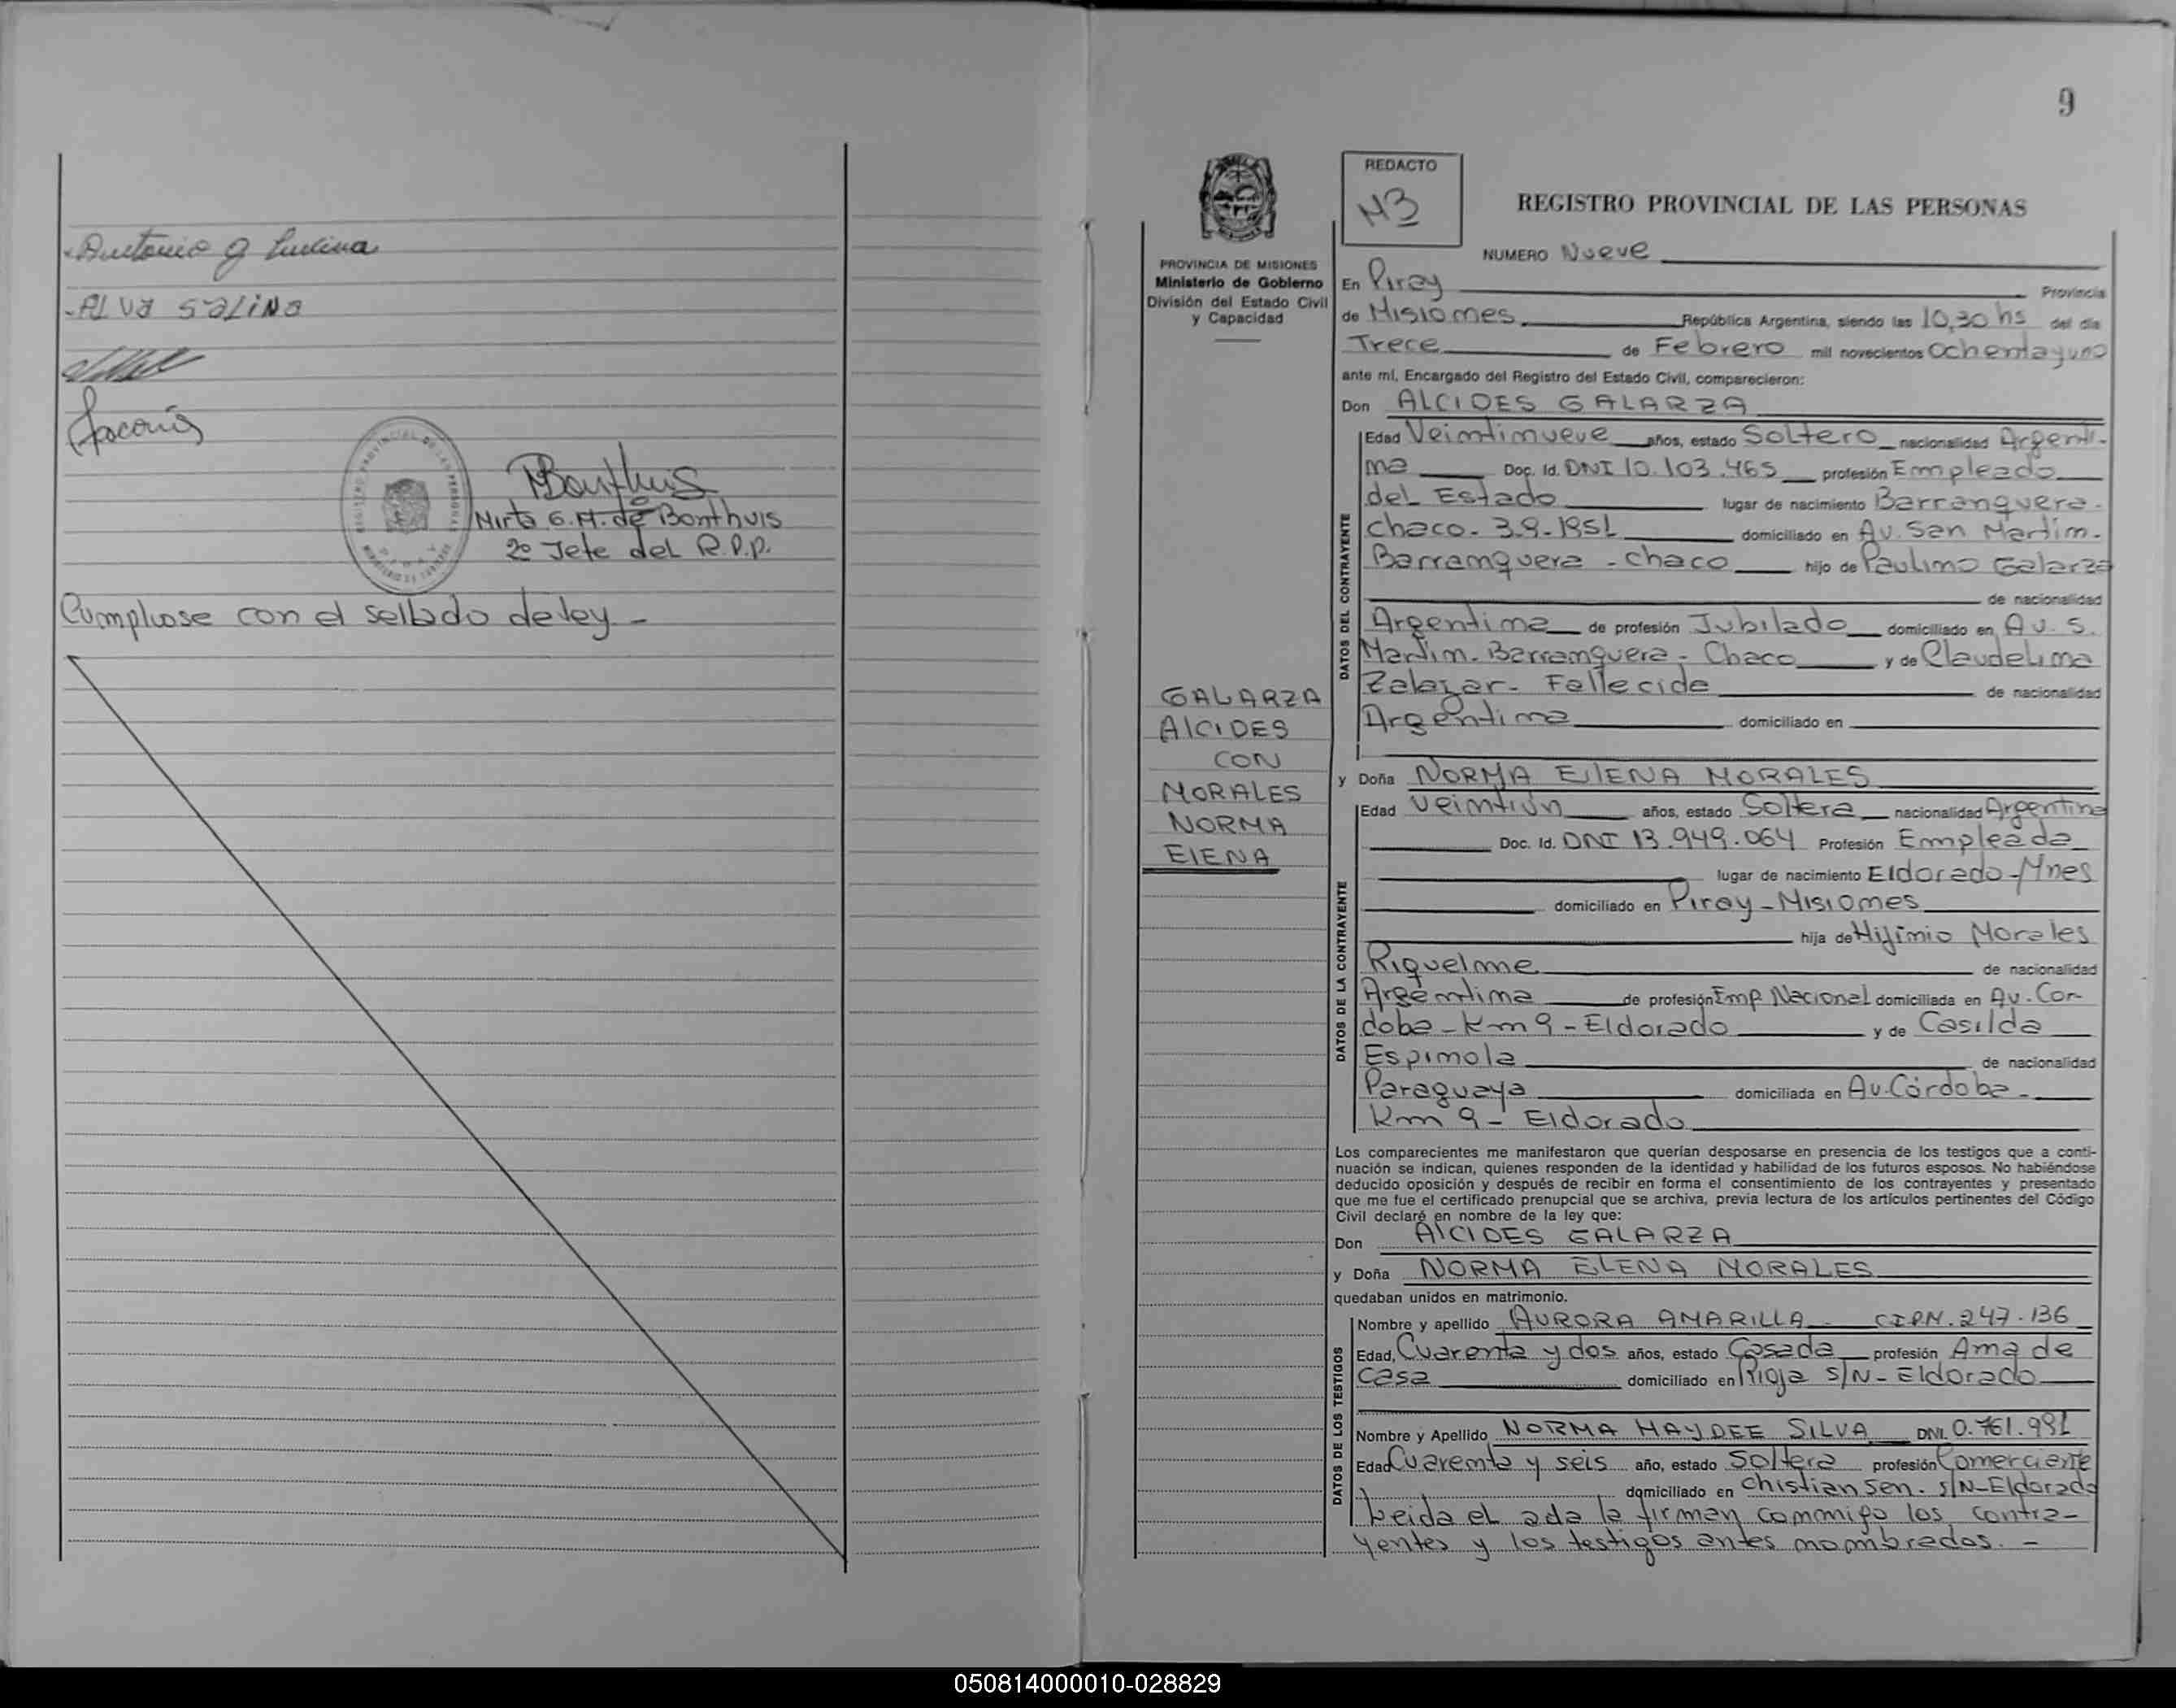 - Antonio G
- ALVA SALINO
Bonthuis
Mirta G. M. de Bonthuis
2º Jefe del R.P.P.
Cumpliose con el sellado de ley -
9
REDACTO
REGISTRO PROVINCIAL DE LAS PERSONAS
NUMERO Nueve
PROVINCIA DE MISIONES
Ministerio de Gobierno
División del Estado Civil
y Capacidad
GALARZA
AlCIDES
CON
MORALES
NORMA
ElENA
En Piray Provincia
de Misiones República Argentina, siendo las 10,30 hs del día
Trece de Febrero mil novecientos ochenta y uno
ante mí, Encargado del Registro del Estado Civil, comparecieron:
Don ALCIDES GALARZA
DATOS DEL CONTRAYENTE
Edad Veintinueve años, estado Soltero nacionalidad Argenti-
na Doc. Id. DNI 10.103.465 profesión Empleado
del Estado lugar de nacimiento Barranquera -
Chaco - 3-9-1951 domiciliado en Av. San Martin -
Barranquera - Chaco hijo de Paulino Galarza
de nacionalidad
Argentina de profesión Jubilado domiciliado en Av. S.
Martin - Barranquera - Chaco y de Claudelina
Zalazar - Fallecida de nacionalidad
Argentina domiciliado en
y Doña NORMA ElENA MORALES
DATOS DE LA CONTRAYENTE
Edad Veintiún años, estado Soltera nacionalidad Argentina
Doc. Id. DNI 13.949.064 Profesión Empleada
lugar de nacimiento Eldorado - Mnes
domiciliado en Piray - Misiones
hija de Hijinio Morales
Riquelme de nacionalidad
Argentina de profesión Emp Nacional domiciliada en Av. Cor-
doba - Km 9 - Eldorado y de Casilda
Espinola de nacionalidad
Paraguaya domiciliada en Av. Córdoba -
Km 9 - Eldorado
Los comparecientes me manifestaron que querían desposarse en presencia de los testigos que a conti-
nuación se indican, quienes responden de la identidad y habilidad de los futuros esposos. No habiéndose
deducido oposición y después de recibir en forma el consentimiento de los contrayentes y presentado
que me fue el certificado prenupcial que se archiva, previa lectura de los artículos pertinentes del Código
Civil declaré en nombre de la ley que:
Don AlCIDES GALARZA
y Doña NORMA ELENA MORALES
quedaban unidos en matrimonio.
DATOS DE LOS TESTIGOS
Nombre y apellido AURORA AMARILLA - CIPN. 247.136
Edad, Cuarenta y dos años, estado Casada profesión Ama de
casa domiciliado en Rioja S/N - Eldorado
Nombre y Apellido NORMA HAYDEE SILVA DNI. 0.761.981
Edad Cuarenta y seis año, estado Soltera profesión Comerciante
domiciliado en Chistiansen - S/N - Eldorado
Leida el acta la firman conmigo los contra-
yentes y los testigos antes nombrados. -
050814000010-028829